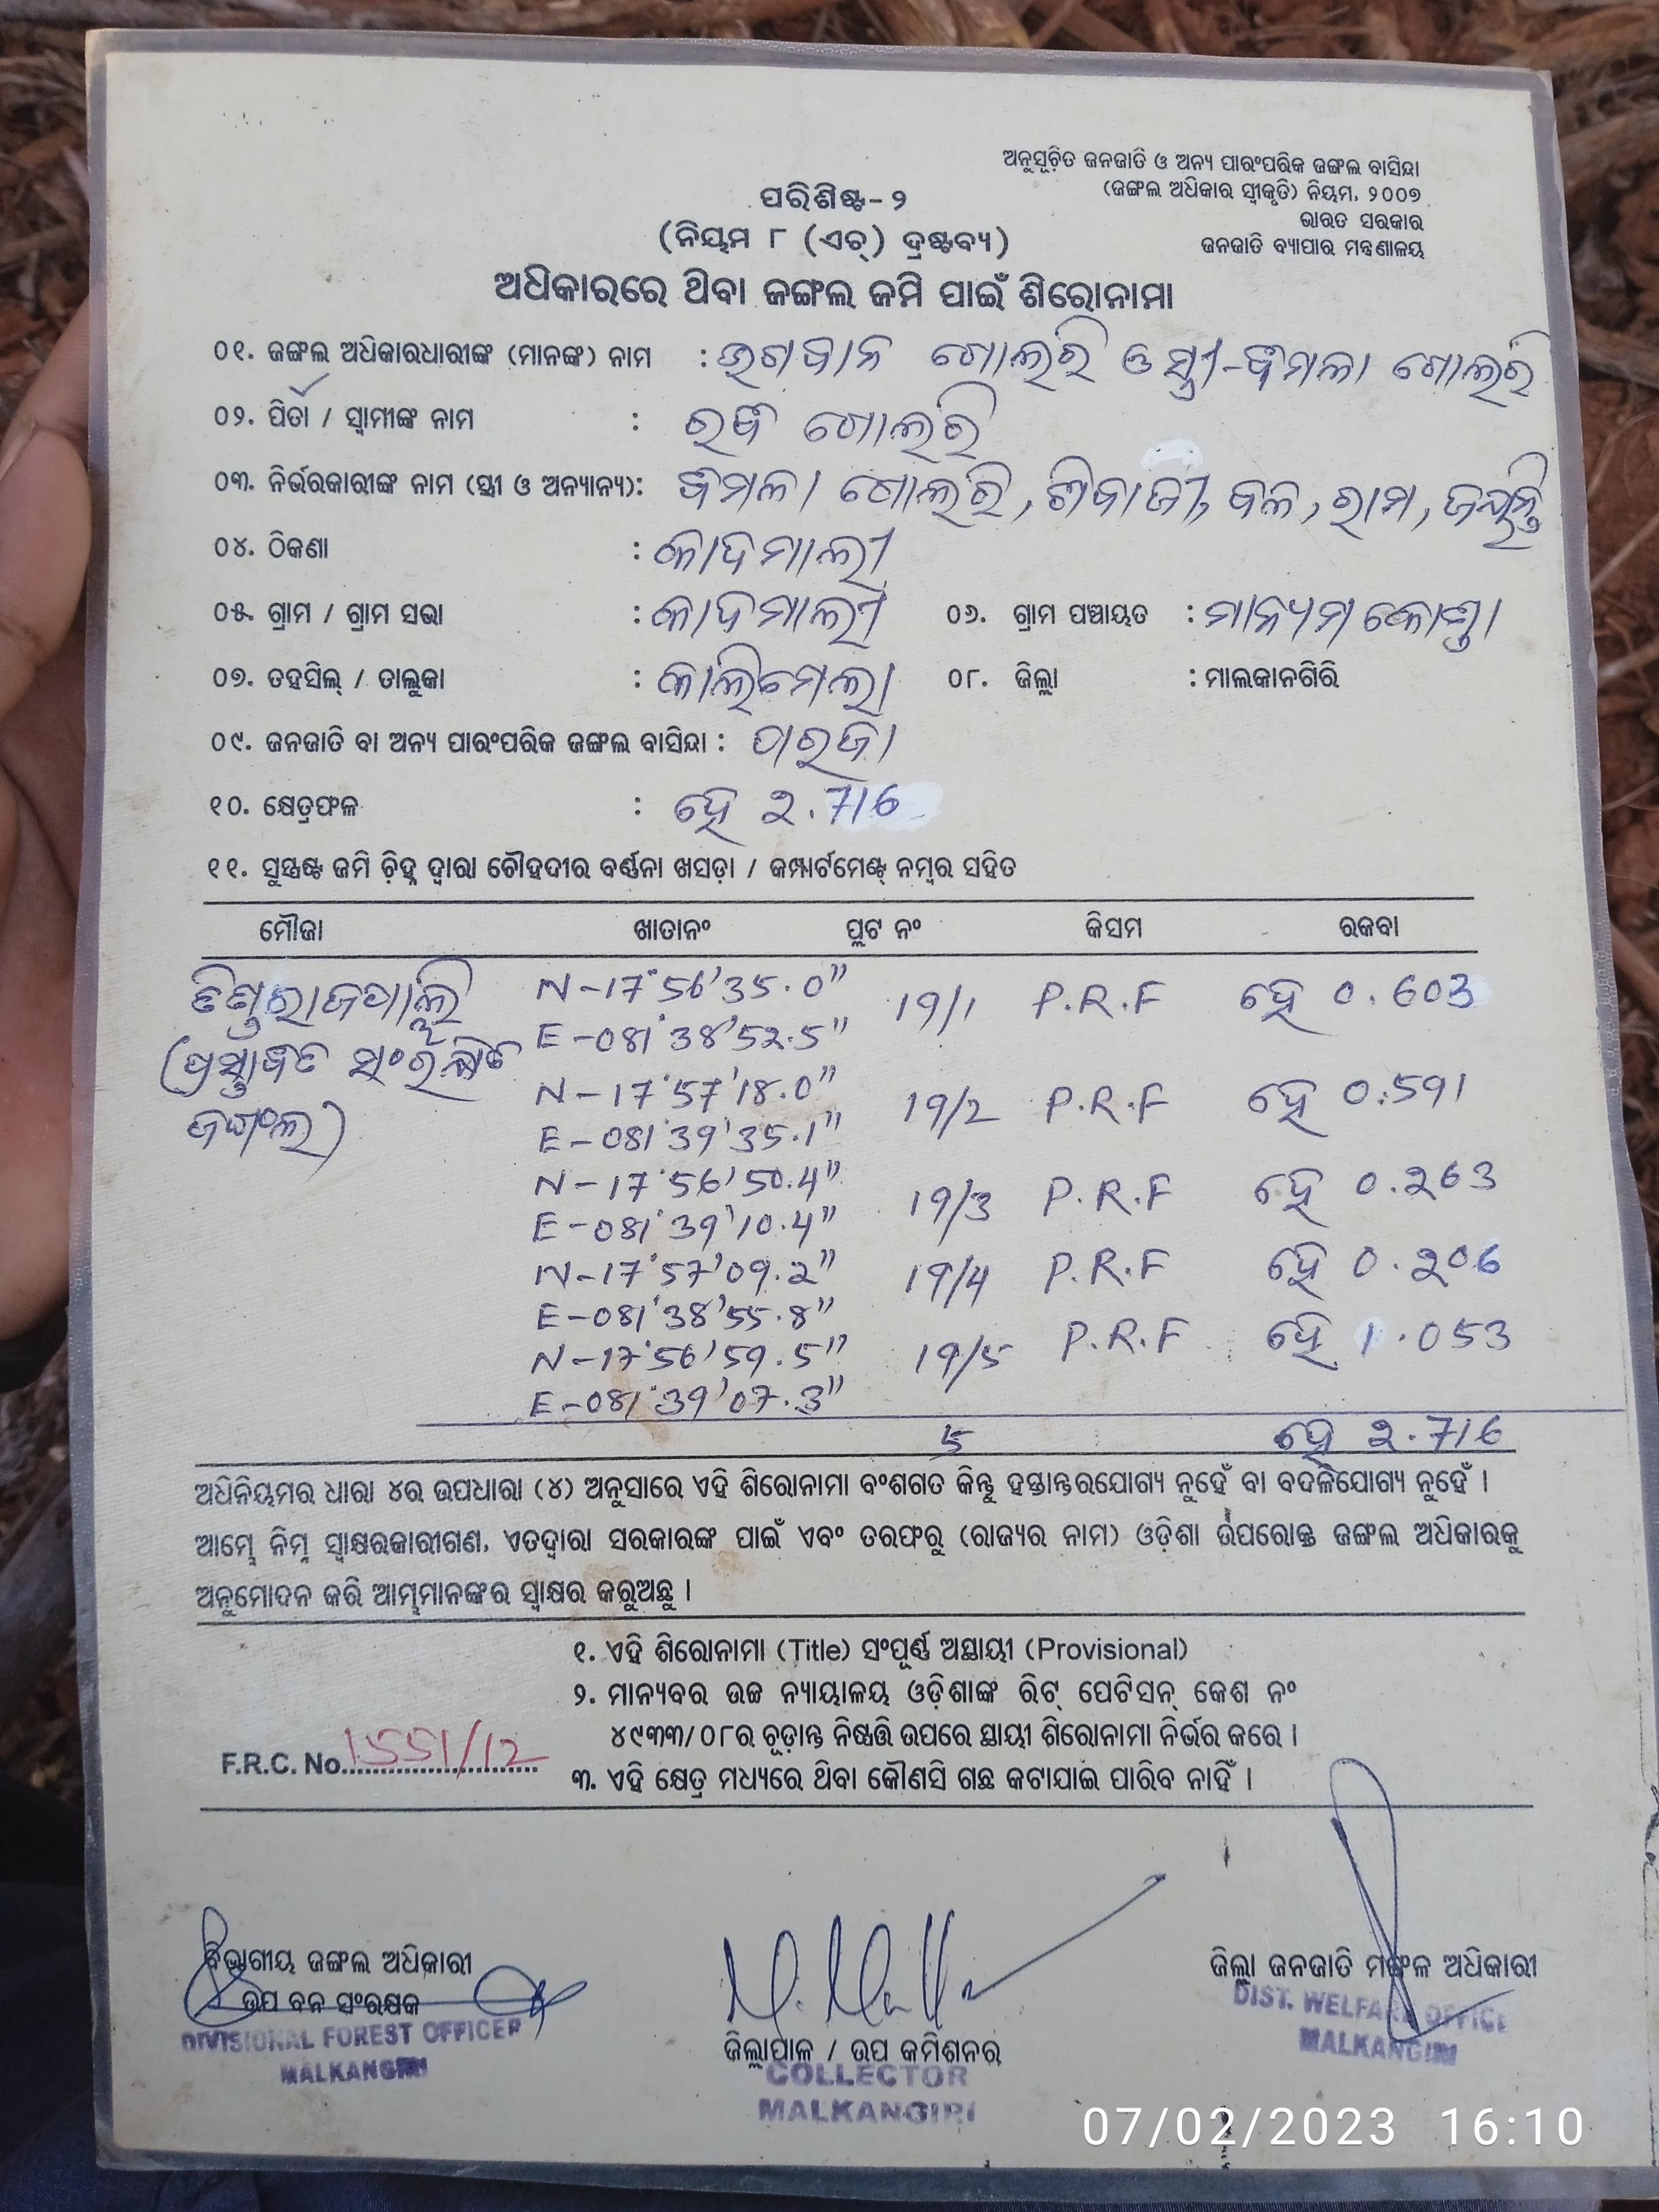 ଅନୁସୂଚିତ ଜନଜାତି ଓ ଅନ୍ୟ ପାରଂପରିକ ଜଙ୍ଗଲ ବାସିନ୍ଦା
(ଜଙ୍ଗଲ ଅଧିକାର ସ୍ୱୀକୃତି) ନିୟମ, ୨୦୦୭
ଭାରତ ସରକାର
ଜନଜାତି ବ୍ୟାପାର ମନ୍ତ୍ରଣାଳୟ
ପରିଶିଷ୍ଟ-୨
(ନିୟମ ୮ (ଏଚ୍) ଦ୍ରଷ୍ଟବ୍ୟ)
ଅଧିକାରରେ ଥିବା ଜଙ୍ଗଲ ଜମି ପାଇଁ ଶିରୋନାମା
୦୧. ଜଙ୍ଗଲ ଅଧିକାରଧାରୀଙ୍କ (ମାନଙ୍କ) ନାମ : ଭଗବାନ ଗୋଲରି ଓ ସ୍ତ୍ରୀ-ବିମଳା ଗୋଲରି
୦୨. ପିତା / ସ୍ୱାମୀଙ୍କ ନାମ : ଗୋଲରି
୦୩. ନିର୍ଭରକାରୀଙ୍କ ନାମ (ସ୍ତ୍ରୀ ଓ ଅନ୍ୟାନ୍ୟ): ବିମଳା ଗୋଲରି, ଶିବାଜୀ, ବଳ, ରାମ, ଜୟନ୍ତି
୦୪. ଠିକଣା : କାଦମାଲୀ
୦୫. ଗ୍ରାମ / ଗ୍ରାମ ସଭା : କାଦମାଲୀ ୦୬. ଗ୍ରାମ ପଞ୍ଚାୟତ : ମାନ୍ୟମକୋଣ୍ଡା
୦୭. ତହସିଲ୍ / ତାଲୁକା : କାଲିମେଲା ୦୮. ଜିଲ୍ଲା : ମାଲକାନଗିରି
୦୯. ଜନଜାତି ବା ଅନ୍ୟ ପାରଂପରିକ ଜଙ୍ଗଲ ବାସିନ୍ଦା : ପାରଜା
୧୦. କ୍ଷେତ୍ରଫଳ : ହେ 2.716
୧୧. ସୁସ୍ପଷ୍ଟ ଜମି ଚିହ୍ନ ଦ୍ୱାରା ଚୌହଦୀର ବର୍ଣ୍ଣନା ଖସଡ଼ା / କମ୍ପାର୍ଟମେଣ୍ଟ୍ ନମ୍ବର ସହିତ
ମୌଜା ଖାତାନଂ ପ୍ଲଟ ନଂ କିସମ ରକବା
N-17°56'35.0" 19/1 P.R.F ହେ 0.603
E-081°38'52.5"
(ପ୍ରସ୍ତାବିତ ସଂରକ୍ଷିତ
N-17°57'18.0" 19/2 P.R.F ହେ 0.591
ଜଙ୍ଗଲ)
E-081°39'35.1"
N-17°56'50.4" 19/3 P.R.F ହେ 0.263
E-081°39'10.4"
N-17°57'09.2" 19/4 P.R.F ହେ 0.206
E-081°38'55.8"
N-17°56'59.5" 19/5 P.R.F ହେ 1.053
E-081°39'07.3"
5 ହେ 2.716
ଅଧିନିୟମର ଧାରା ୪ର ଉପଧାରା (୪) ଅନୁସାରେ ଏହି ଶିରୋନାମା ବଂଶଗତ କିନ୍ତୁ ହସ୍ତାନ୍ତରଯୋଗ୍ୟ ନୁହେଁ ବା ବଦଳିଯୋଗ୍ୟ ନୁହେଁ ।
ଆମ୍ଭେ ନିମ୍ନ ସ୍ୱାକ୍ଷରକାରୀଗଣ, ଏତଦ୍ୱାରା ସରକାରଙ୍କ ପାଇଁ ଏବଂ ତରଫରୁ (ରାଜ୍ୟର ନାମ) ଓଡ଼ିଶା ଉପରୋକ୍ତ ଜଙ୍ଗଲ ଅଧିକାରକୁ
ଅନୁମୋଦନ କରି ଆମ୍ଭମାନଙ୍କର ସ୍ୱାକ୍ଷର କରୁଅଛୁ ।
୧. ଏହି ଶିରୋନାମା (Title) ସଂପୂର୍ଣ୍ଣ ଅସ୍ଥାୟୀ (Provisional)
୨. ମାନ୍ୟବର ଉଚ୍ଚ ନ୍ୟାୟାଳୟ ଓଡ଼ିଶାଙ୍କ ରିଟ୍ ପେଟିସନ୍ କେଶ ନଂ
୪୯୩୩/୦୮ର ଚୂଡ଼ାନ୍ତ ନିଷ୍ପତ୍ତି ଉପରେ ସ୍ଥାୟୀ ଶିରୋନାମା ନିର୍ଭର କରେ ।
F.R.C. No. 1551/12
୩. ଏହି କ୍ଷେତ୍ର ମଧ୍ୟରେ ଥିବା କୌଣସି ଗଛ କଟାଯାଇ ପାରିବ ନାହିଁ ।
ବିଭାଗୀୟ ଜଙ୍ଗଲ ଅଧିକାରୀ
ଉପ ବନ ସଂରକ୍ଷକ
DIVISIONAL FOREST OFFICER
MALKANGIRI
ଜିଲ୍ଲାପାଳ / ଉପ କମିଶନର୍
COLLECTOR
MALKANGIRI
ଜିଲ୍ଲା ଜନଜାତି ମଙ୍ଗଳ ଅଧିକାରୀ
DIST. WELFARE OFFICE
MALKANGIRI
07/02/2023 16:10